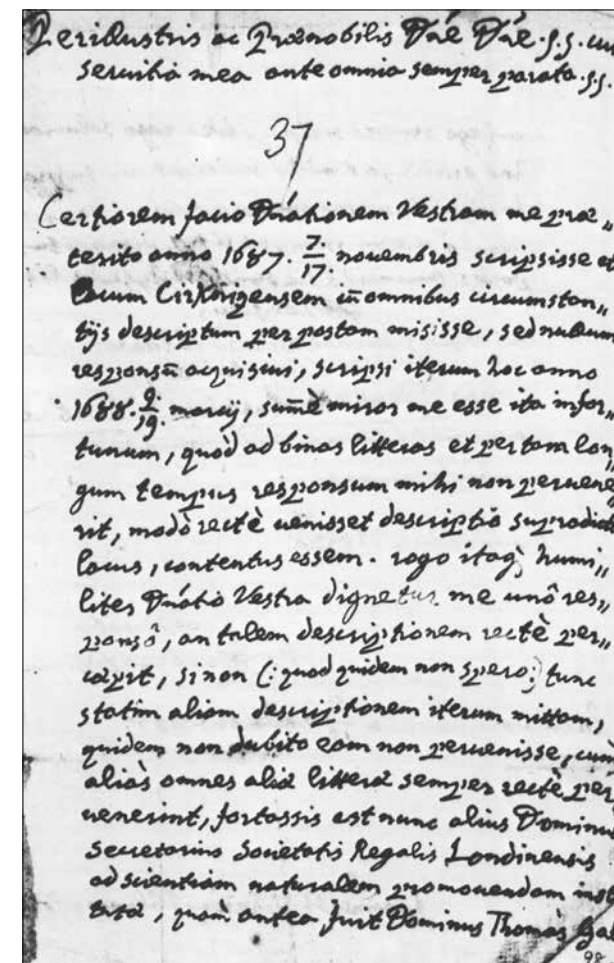 Perillustris ac Prænobilis Dn̄e Dn̄e .s.s. cum
servitia mea ante omnia semper parata .s.s.
37
Certiorem facio Dn̄ationem Vestram me præ„
terito anno 1687. 7./17. novembris scripsisse et
lacum Cirknizensem in̄ omnibus circumstan„
tijs descriptum per postam misisse, sed nullum
respons̄u acquisivi, scripsi iterum hoc anno
1688. 9./19. marcij, sum̄è miror me esse ita infor„
tunum, quòd ad binas litteras et per tam lon„
gum tempus responsum mihi non pervene
rit, modò rectè venisset descriptio supradicti
lacus, contentus essem. rogo itaq́ humi„
liter Dn̄atio Vestra dignetur me unô res„
ponsô, an talem descriptionem rectè per„
cæpit, si non (: quod quidem non spero:) tunc
statim aliam descriptionem iterum mittam,
quidem non dubito eam non pervenisse, cum
aliàs omnes aliæ litteræ semper rectè per
venerint, fortassis est nunc alius Dominus
Secretarius Societatis Regalis Londinensis
ad scientiam naturalem promovendam insti
tutæ, quàm antea fuit Dominus Thomas Gal
98